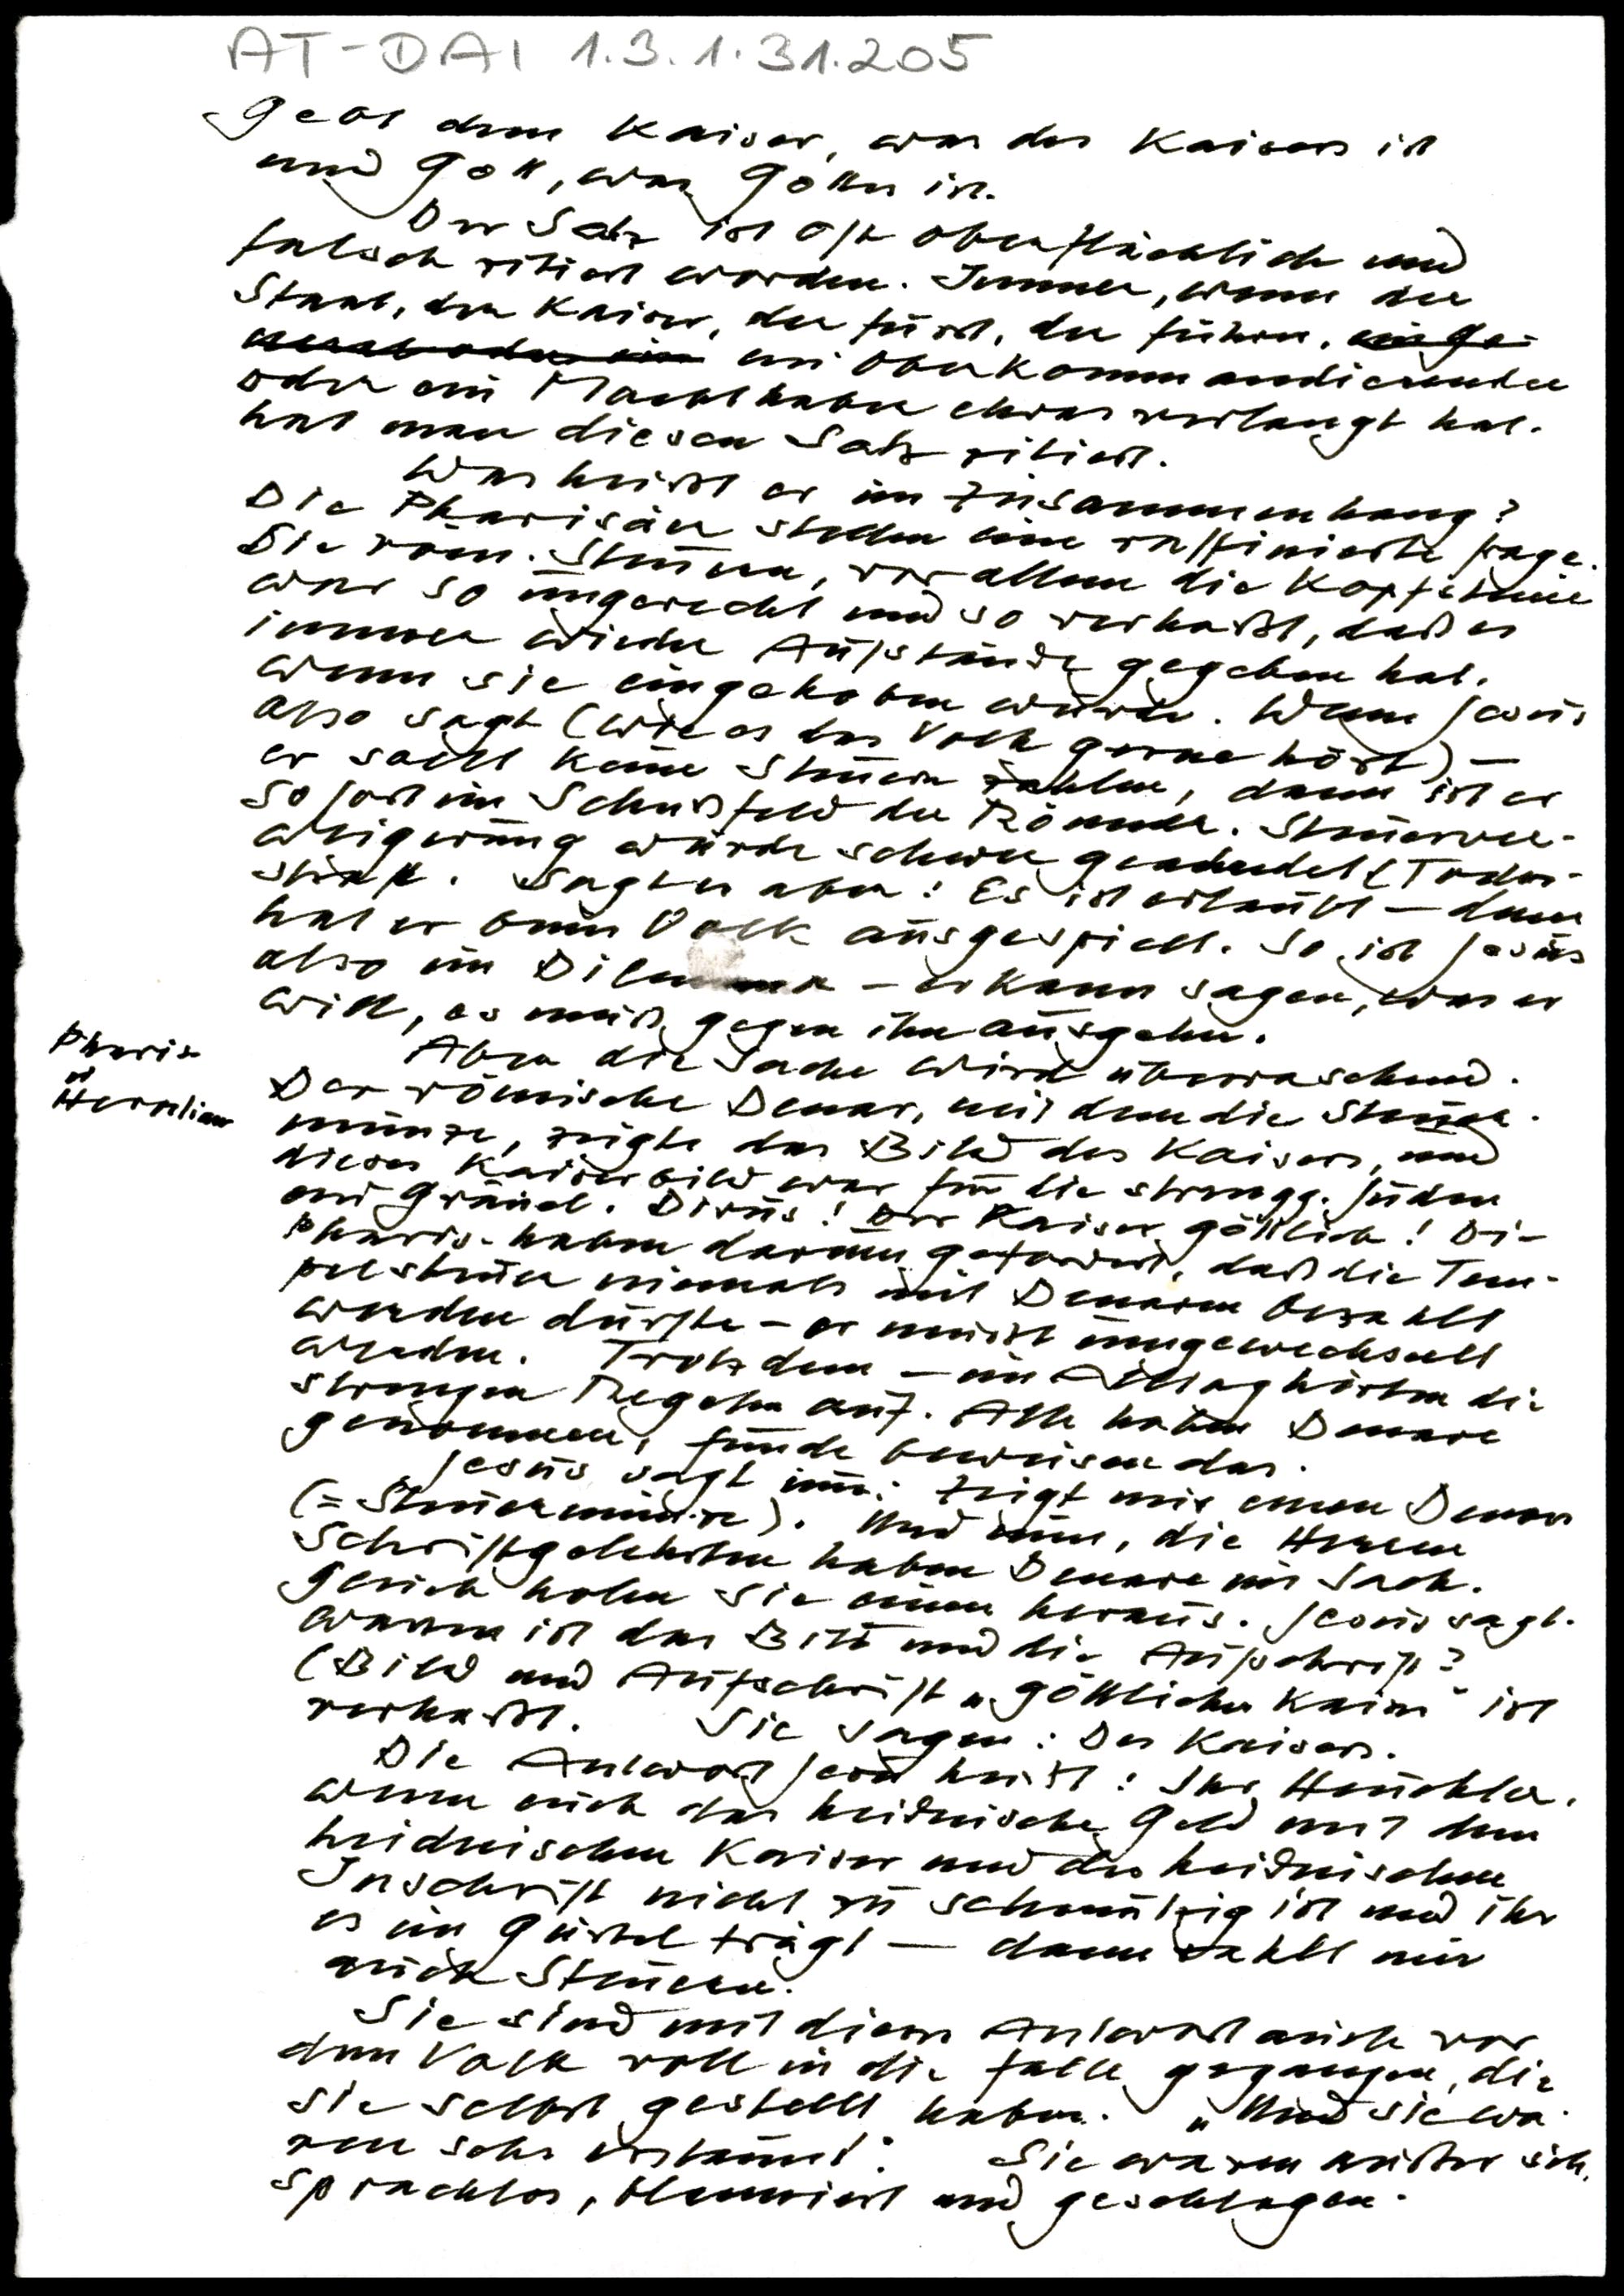 AT-DAI 1.3.1.31.205
Gebt dem Kaiser, was des Kaisers ist
und Gott, was Gottes ist.
Der Satz ist oft oberflächlich und
falsch zitiert worden. Immer, wenn der
Staat, der Kaiser, der Fürst, der Führer, ein Ge-
neral oder ein ein Oberkommandierender
oder ein Machthaber etwas verlangt hat.
hat man diesen Satz zitiert.
Was heißt er im Zusammenhang?
Die Pharisäer stellen eine raffinierte Frage.
Die röm. Steuern, vor allem die Kopfsteuer
war so ungerecht und so verhaßt, daß es
immer wieder Aufstände gegeben hat.
wenn sie eingehoben wurde. Wenn Jesus
also sagt (wie es das Volk gerne hört) –
er soll keine Steuern zahlen, dann ist er
sofort im Schußfeld der Römer. Steuerver-
weigerung wurde schwer geahndet (Todes-
strafe. Sagt er aber: Es ist erlaubt – dann
hat er beim Volk ausgespielt. So ist Jesus
also im Dilemma – er kann sagen, was er
will, es muß gegen ihn ausgehen.
Pharis.
u
Herodian
Aber die Sache wird überraschend.
Der römische Denar, mit dem die Steuer-
münze, zeigte das Bild des Kaisers, und
dieses Kaiserbild war für die strengg. Juden
ein Gräuel. Divus! Der Kaiser göttlich! Di-
Pharis. haben darum gefordert, daß die Tem-
pelsteuer niemals mit Denaren bezahlt
werden dürfte – er mußt umgewechselt
werden. Trotzdem – im Alltag hörten die
strengen Regeln auf. Alle haben Denare
genommen, Funde beweisen das.
Jesus sagt nun: Zeigt mir einen Denar
(= Steuermünze). Und nun, die Herren
Schriftgelehrten haben Denare im Sack.
Gleich holen sie einen heraus. Jesus sagt.
Wessen ist das Bild und die Aufschrift?
(Bild und Aufschrift „göttlicher Kaiser" ist
verhaßt. Sie sagen: Des Kaisers.
Die Antwort Jesu heißt: Ihr Heuchler,
wenn euch das heidnische Geld mit dem
heidnischen Kaiser und der heidnischen
Inschrift nicht zu schmutzig ist und ihr
es im Gürtel trägt – dann zahlt nur
auch Steuern.
Sie sind mit dieser Antwort auch vor
dem Volk voll in die Falle gegangen, die
sie selbst gestellt haben. „Und sie wa-
ren sehr erstaunt". Sie waren außer sich,
sprachlos, blamiert und geschlagen.